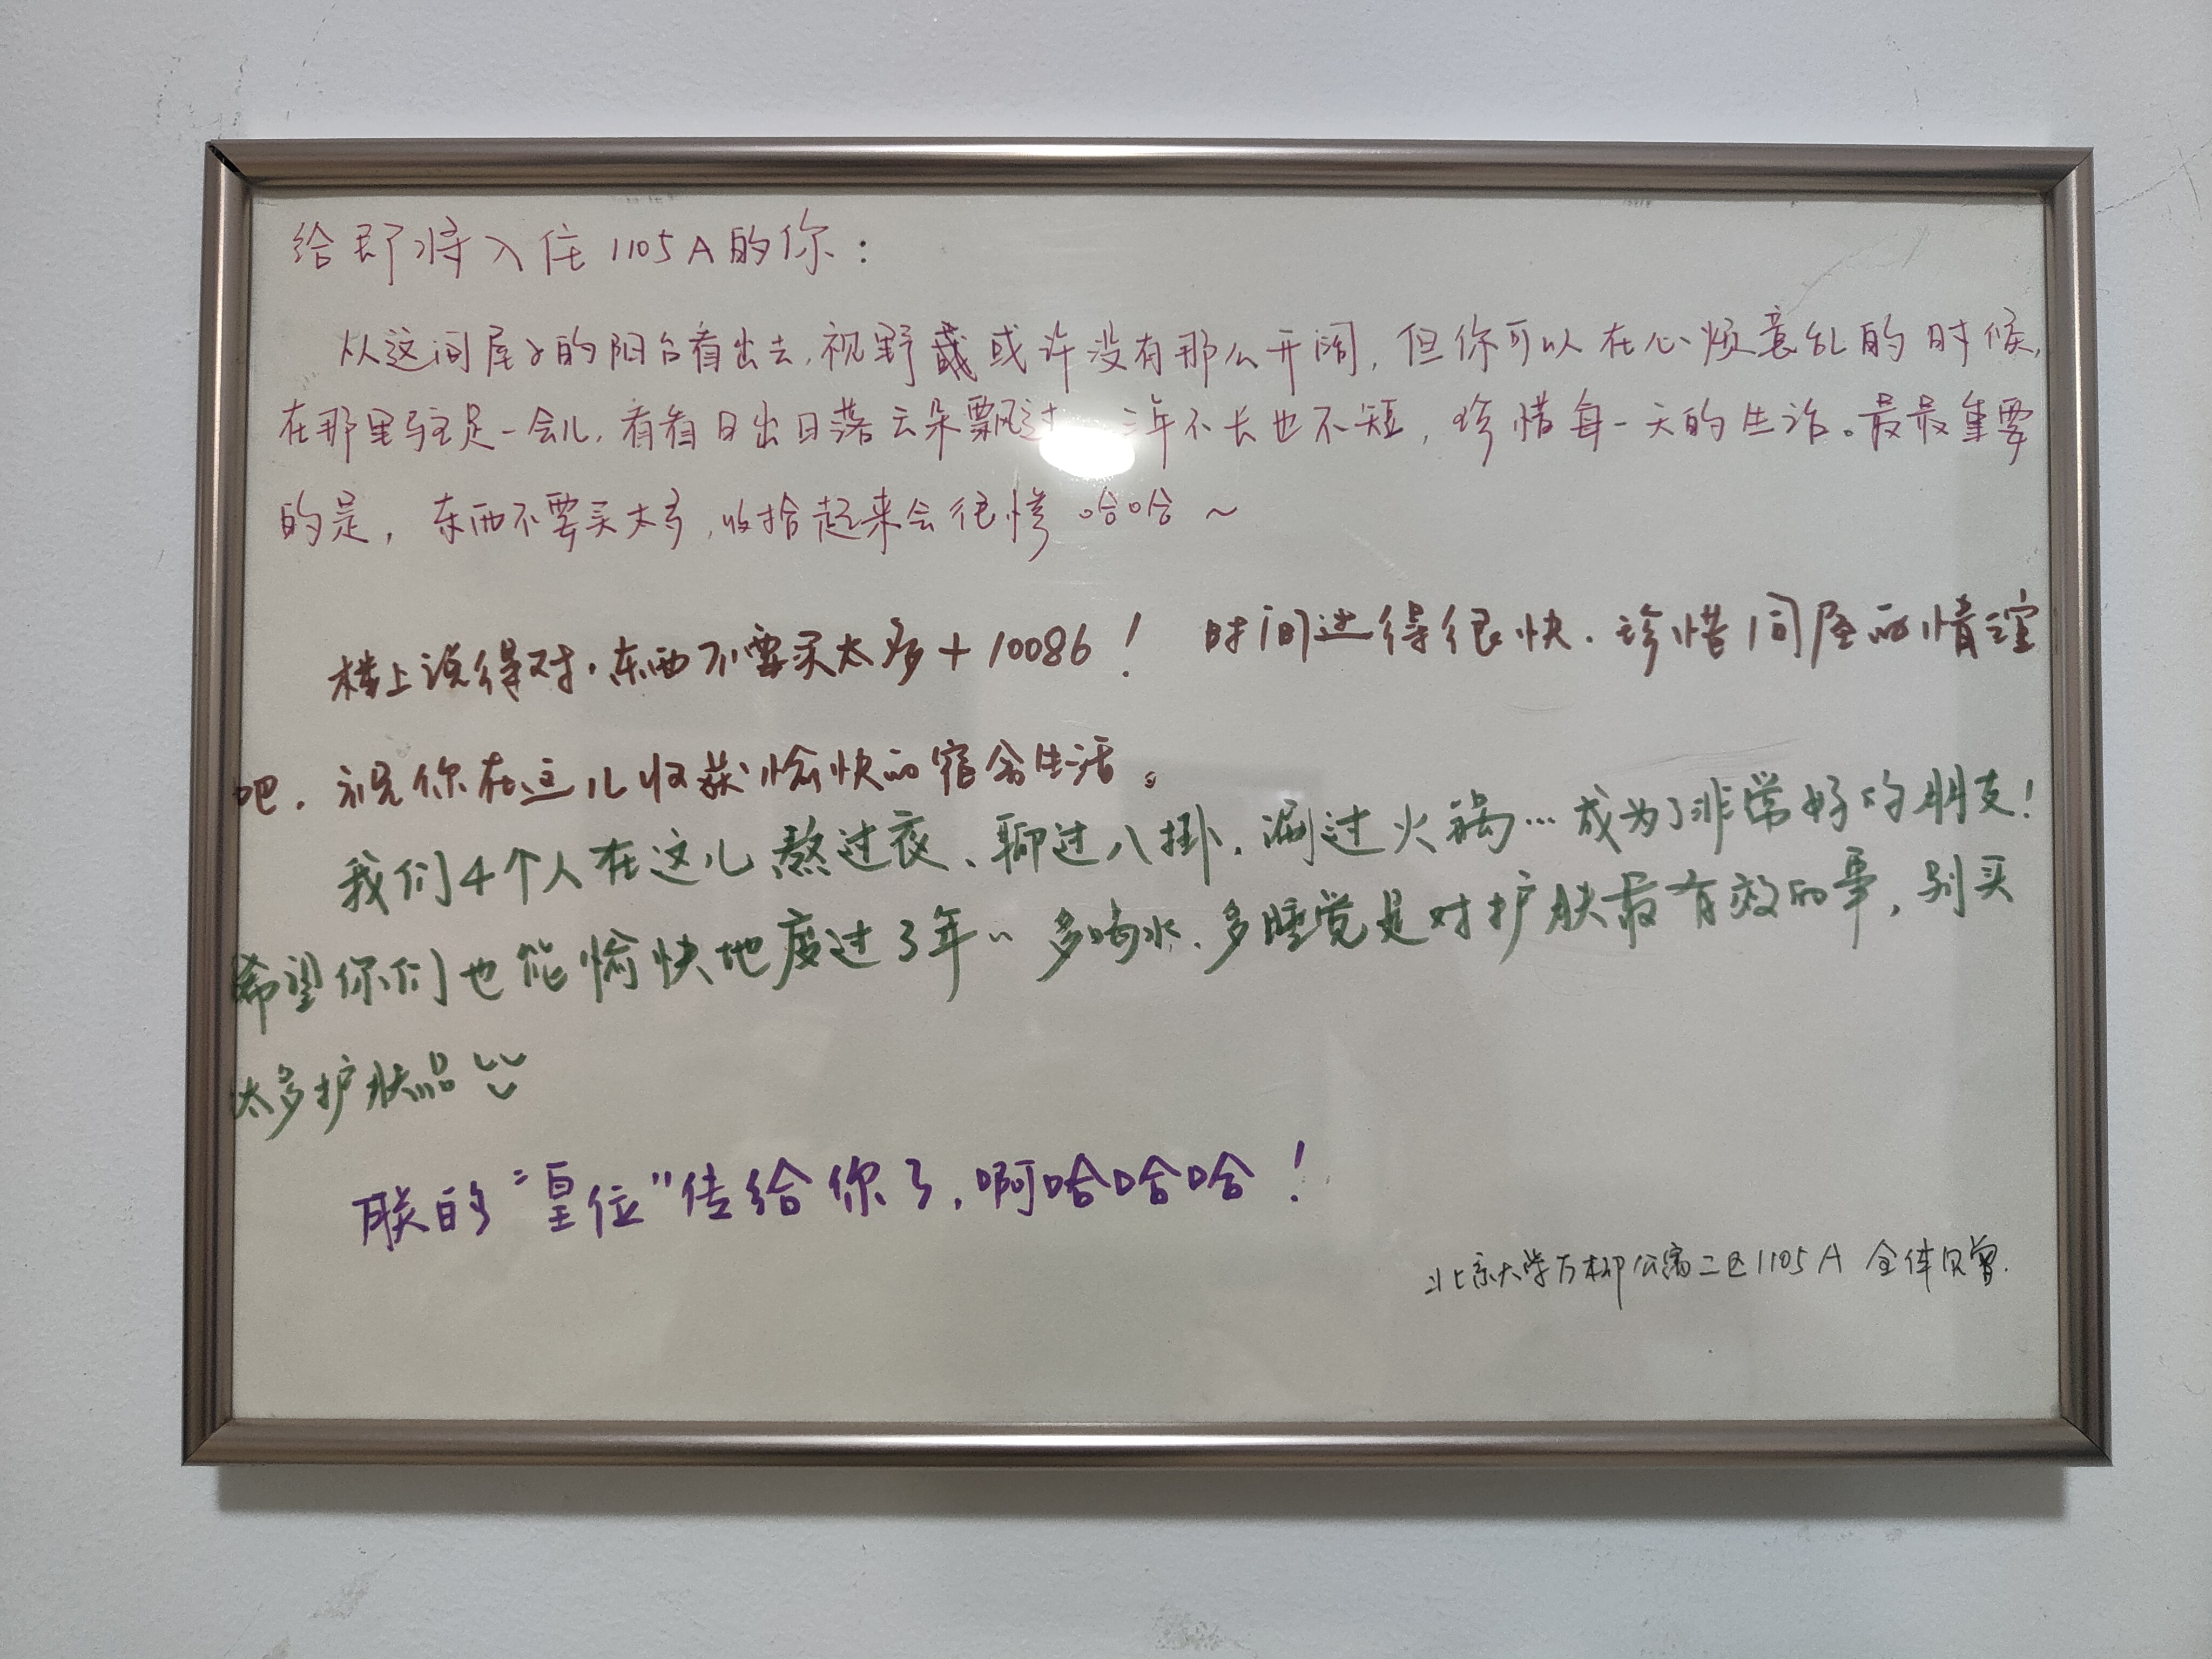 给即将入住1105A的你：
从这间屋子的阳台看出去,视野或许没有那么开阔,但你可以在心烦意乱的时候,
在那里驻足一会儿,看看日出日落云朵飘过 三年不长也不短,珍惜每一天的生活。最最重要
的是,东西不要买太多,收拾起来会很惨 哈哈～
楼上说得对,东西不要买太多+10086！ 时间过得很快.珍惜同屋的情谊
吧.祝你在这儿收获愉快的宿舍生活。
我们4个人在这儿熬过夜、聊过八卦,涮过火锅…成为了非常好的朋友!
希望你们也能愉快地度过3年~ 多喝水、多睡觉是对护肤最有效的事,别买
太多护肤品
朕的“皇位”传给你了,啊哈哈哈！
北京大学万柳公寓二区1105A 全体贝曾.